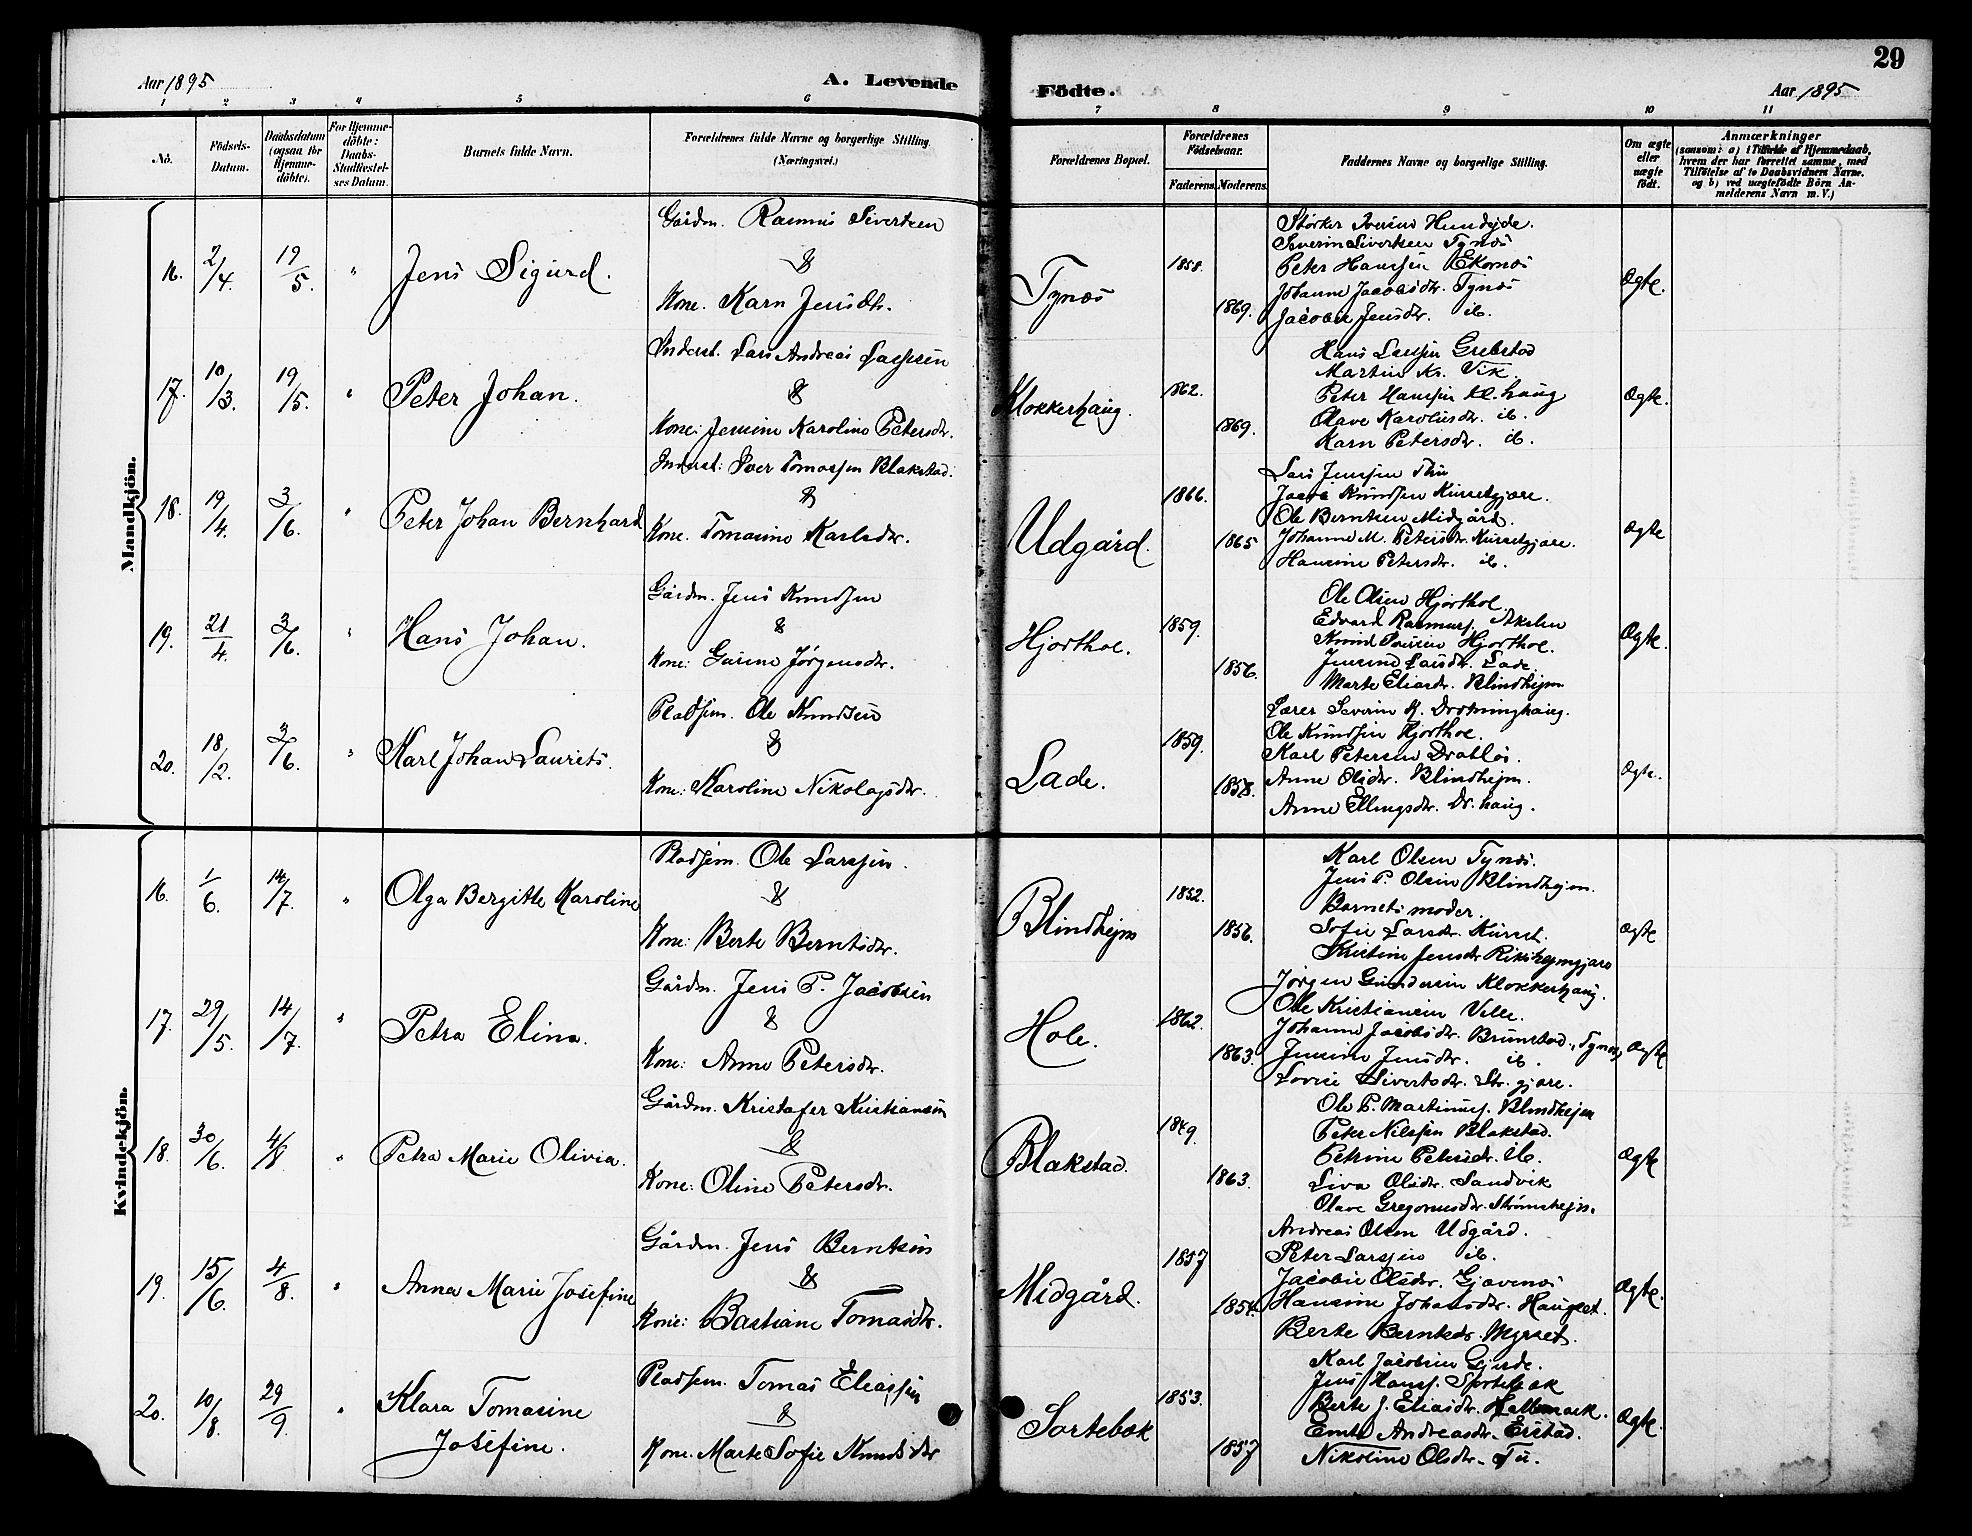 29
Aar 1895 A. Levende Födte. Aar 1895
1 2 3 4 5 6 7 8 9 10 11
No. Födsels-Datum. Daabsdatum (ogsaa for Hjemme-döbte). For Hjemme-döbte: Daabs-Stadfæstel-ses Datum. Barnets fulde Navn. Forældrenes fulde Navne og borgerlige Stilling. (Næringsvei.) Forældrenes Bopæl. Forældrenes Födselsaar. Faderens. Moderens. Faddernes Navne og borgerlige Stilling. Om ægte eller uægte födt. Anmærkninger (saasom: a) i Tilfælde af Hjemmedaab, hvem der har forrettet samme, med Tilföielse af to Daabsvidners Navne, og b) ved uægtefödte Börn An-melderens Navn m. V.)
Mandkjön.
16. 2/4. 19/5. " Jens Sigurd. Gårdm. Rasmus Sivertsen & Kone. Karn Jensdtr. Tynæs 1858. 1869. Ægte.
Størker Iversen Hundejde.
Severin Sivertsen Tynæs
Peter Hanssen Ekornæs
Johanne Jacobsdtr. Tynæs
Jacobie Jensdtr. ib.
17. 10/3. 19/5. " Peter Johan. Inderst. Lars Andreas Larssen & Kone: Jensine Karoline Petersdtr. Klokkerhaug. 1862. 1869. Ægte.
Hans Larssen Grebstad
Martin Kr. Vik.
Peter Hanssen Kl. haug
Olave Karolusdtr. ib.
Karn Petersdtr. ib.
18. 19/4. 3/6. " Peter Johan Bernhard Inderst: Iver Tomassen Blakstad. & Kone. Tomasine Karlsdtr. Udgård. 1866. 1865 Ægte
Lars Jenssen Thu
Jacob Knudsen Kursetgjære.
Ole Berntsen Midgård.
Johanne M. Petersdtr. Kursetgjære.
Hansine Petersdtr. ib.
19. 21/4. 3/6. " Hans Johan. Gårdm. Jens Knudsen & Kone: Gurine Jørgensdtr. Hjorthol. 1859. 1856. Ægte.
Ole Olsen Hjorthol.
Edvard Rasmuss. Akslen
Knud Hjorthol.
Jensine Larsdtr. Lade.
Marte Eliasdtr. Blindhejm
20. 18/2. 3/6. " Karl Johan Laurits. Pladsem. Ole Knudsen & Kone: Karoline Nikolajsdtr. Lade. 1859. 1858. Ægte.
Lærer Severin K. Drotninghaug.
Ole Knudsen Hjorthol.
Karl Petersen Drabløs.
Anne Olsdtr. Blindhejm.
Anne Ellingsdtr. Dr. haug.
Kvindekjön.
16. 1/6. 14/7. " Olga Bergitte Karoline Pladsem. Ole Larssen. & Kone: Berte Berntsdtr. Blindhejm 1852. 1856. Ægte
Karl Olsen Tynæs.
Jens P. Olsen Blindhejm.
Barnets moder.
Sofie Larsdtr. Kurset.
Kristine Jensdtr Rikshejmgjære
17. 29/5. 14/7. " Petra Elina. Gårdm. Jens P. Jacobsen & Kone: Anne Petersdtr. Hole. 1862. 1863. Ægte
Jørgen Gundersen Klokkerhaug.
Ole Kristiansen Velle.
Johanne Jacobsdtr. Brunstad., Tynæs,
Jensine Jensdtr. ib.
Lovise Sivertsdtr. Str. gjære.
18. 30/6. 4/8. " Petra Marie Olivia. Gårdm. Kristafer Kristiansen & Kone: Oline Petersdtr. Blakstad. 1849. 1863. Ægte
Ole P. Martinuss. Blindhejm
Peter Nilssen Blakstad.
Petrine Petersdtr. ib.
Liva Olsdtr. Sandvik
Olave Gregoriusdtr. Strømshejm.
19. 15/6. 4/8. " Anna Marie Josefine Gårdm. Jens Berntsen & Kone: Bastiane Tomasdtr. Midgård. 1857 1854. Ægte.
Andreas Olsen Udgård.
Peter Larssen ib.
Jacobie Olsdtr. Gjævenæs
Hansine Johansdtr. Haugset.
Berte Berntsdtr. Myrset.
20. 10/8. 29/9. " Klara Tomasine Josefine. Pladsem. Tomas Eliassen & Kone. Marte Sofie Knudsdtr Sortebæk 1853. 1857 Ægte.
Karl Jacobsen Gjerde.
Jens Hanss. Sortebæk
Berte J. Eliasdtr.
Andreasdtr. Erstad.
Nikoline Olsdtr. Tu.